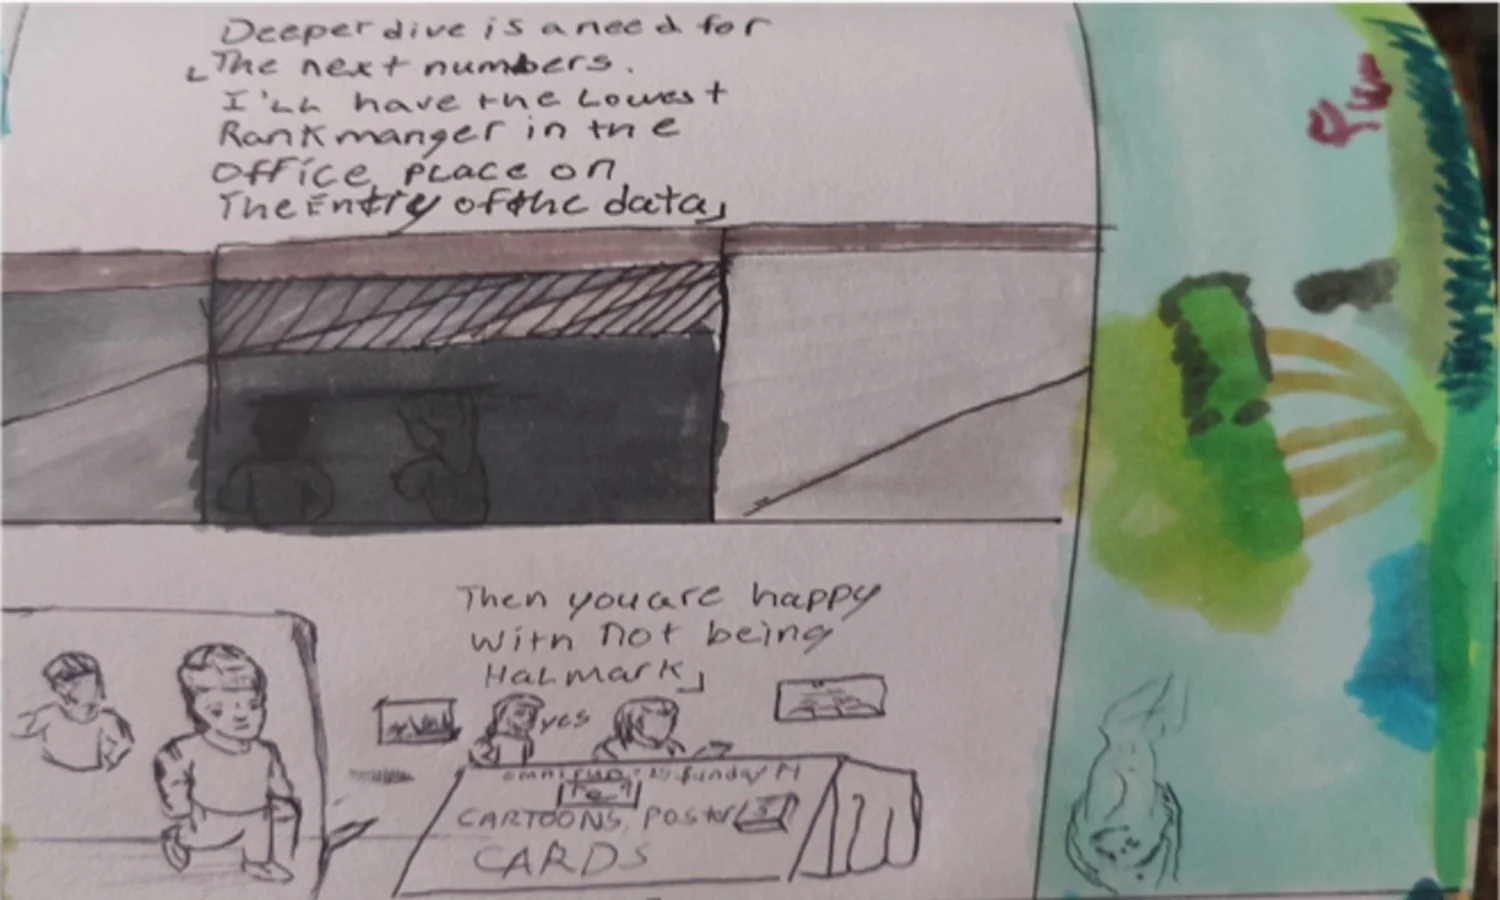 Deeper dive is a need for
The next numbers.
I'LL have the Lowest
Rank manger in the
Office place on
The Entry of the data
Then you are happy
with not being
HaLmark
yes
CARTOONS, POSt
CARDS
Run